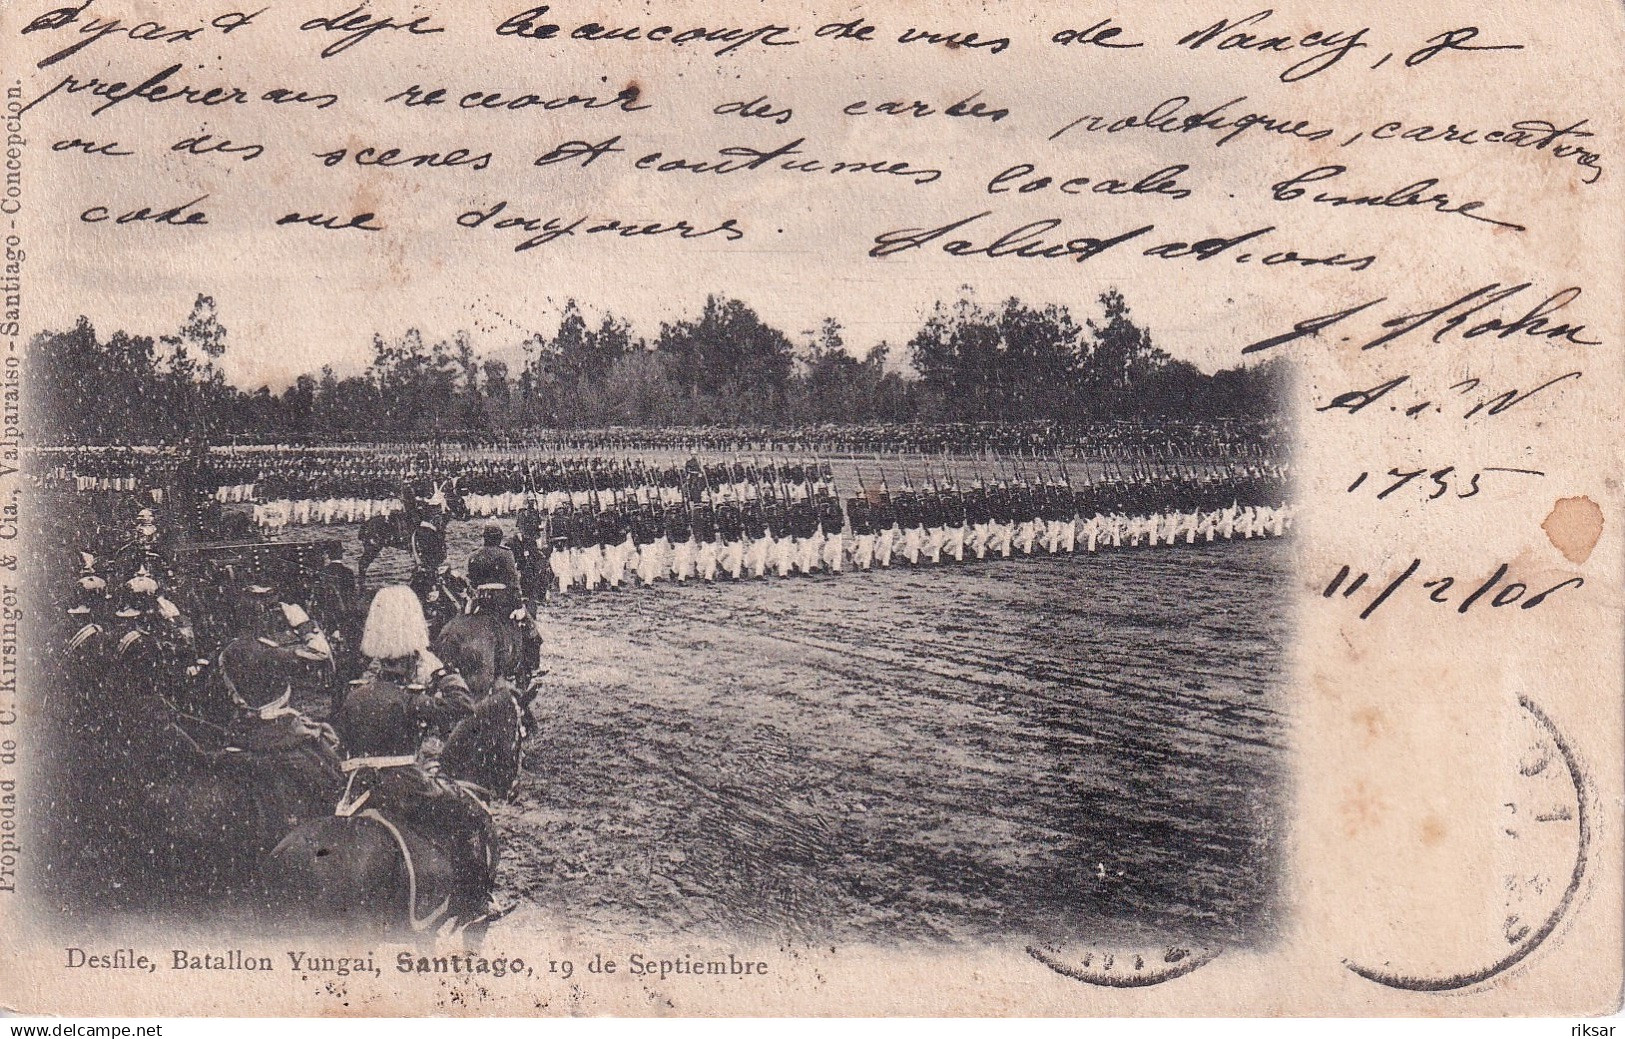 Ayant deja beaucoup de vues de Nancy, je
prefererais recevoir des cartes politiques, caricatures
ou des scenes et coutumes locales. Timbre
cote vue toujours. Salutations
J. Kohn
A. i. N
1735
11/2/06
Propiedad de C. Kirsinger & Cia., Valparaiso-Santiago-Concepcion.
Desfile, Batallon Yungai, Santiago, 19 de Septiembre
delcampe.net
riksar